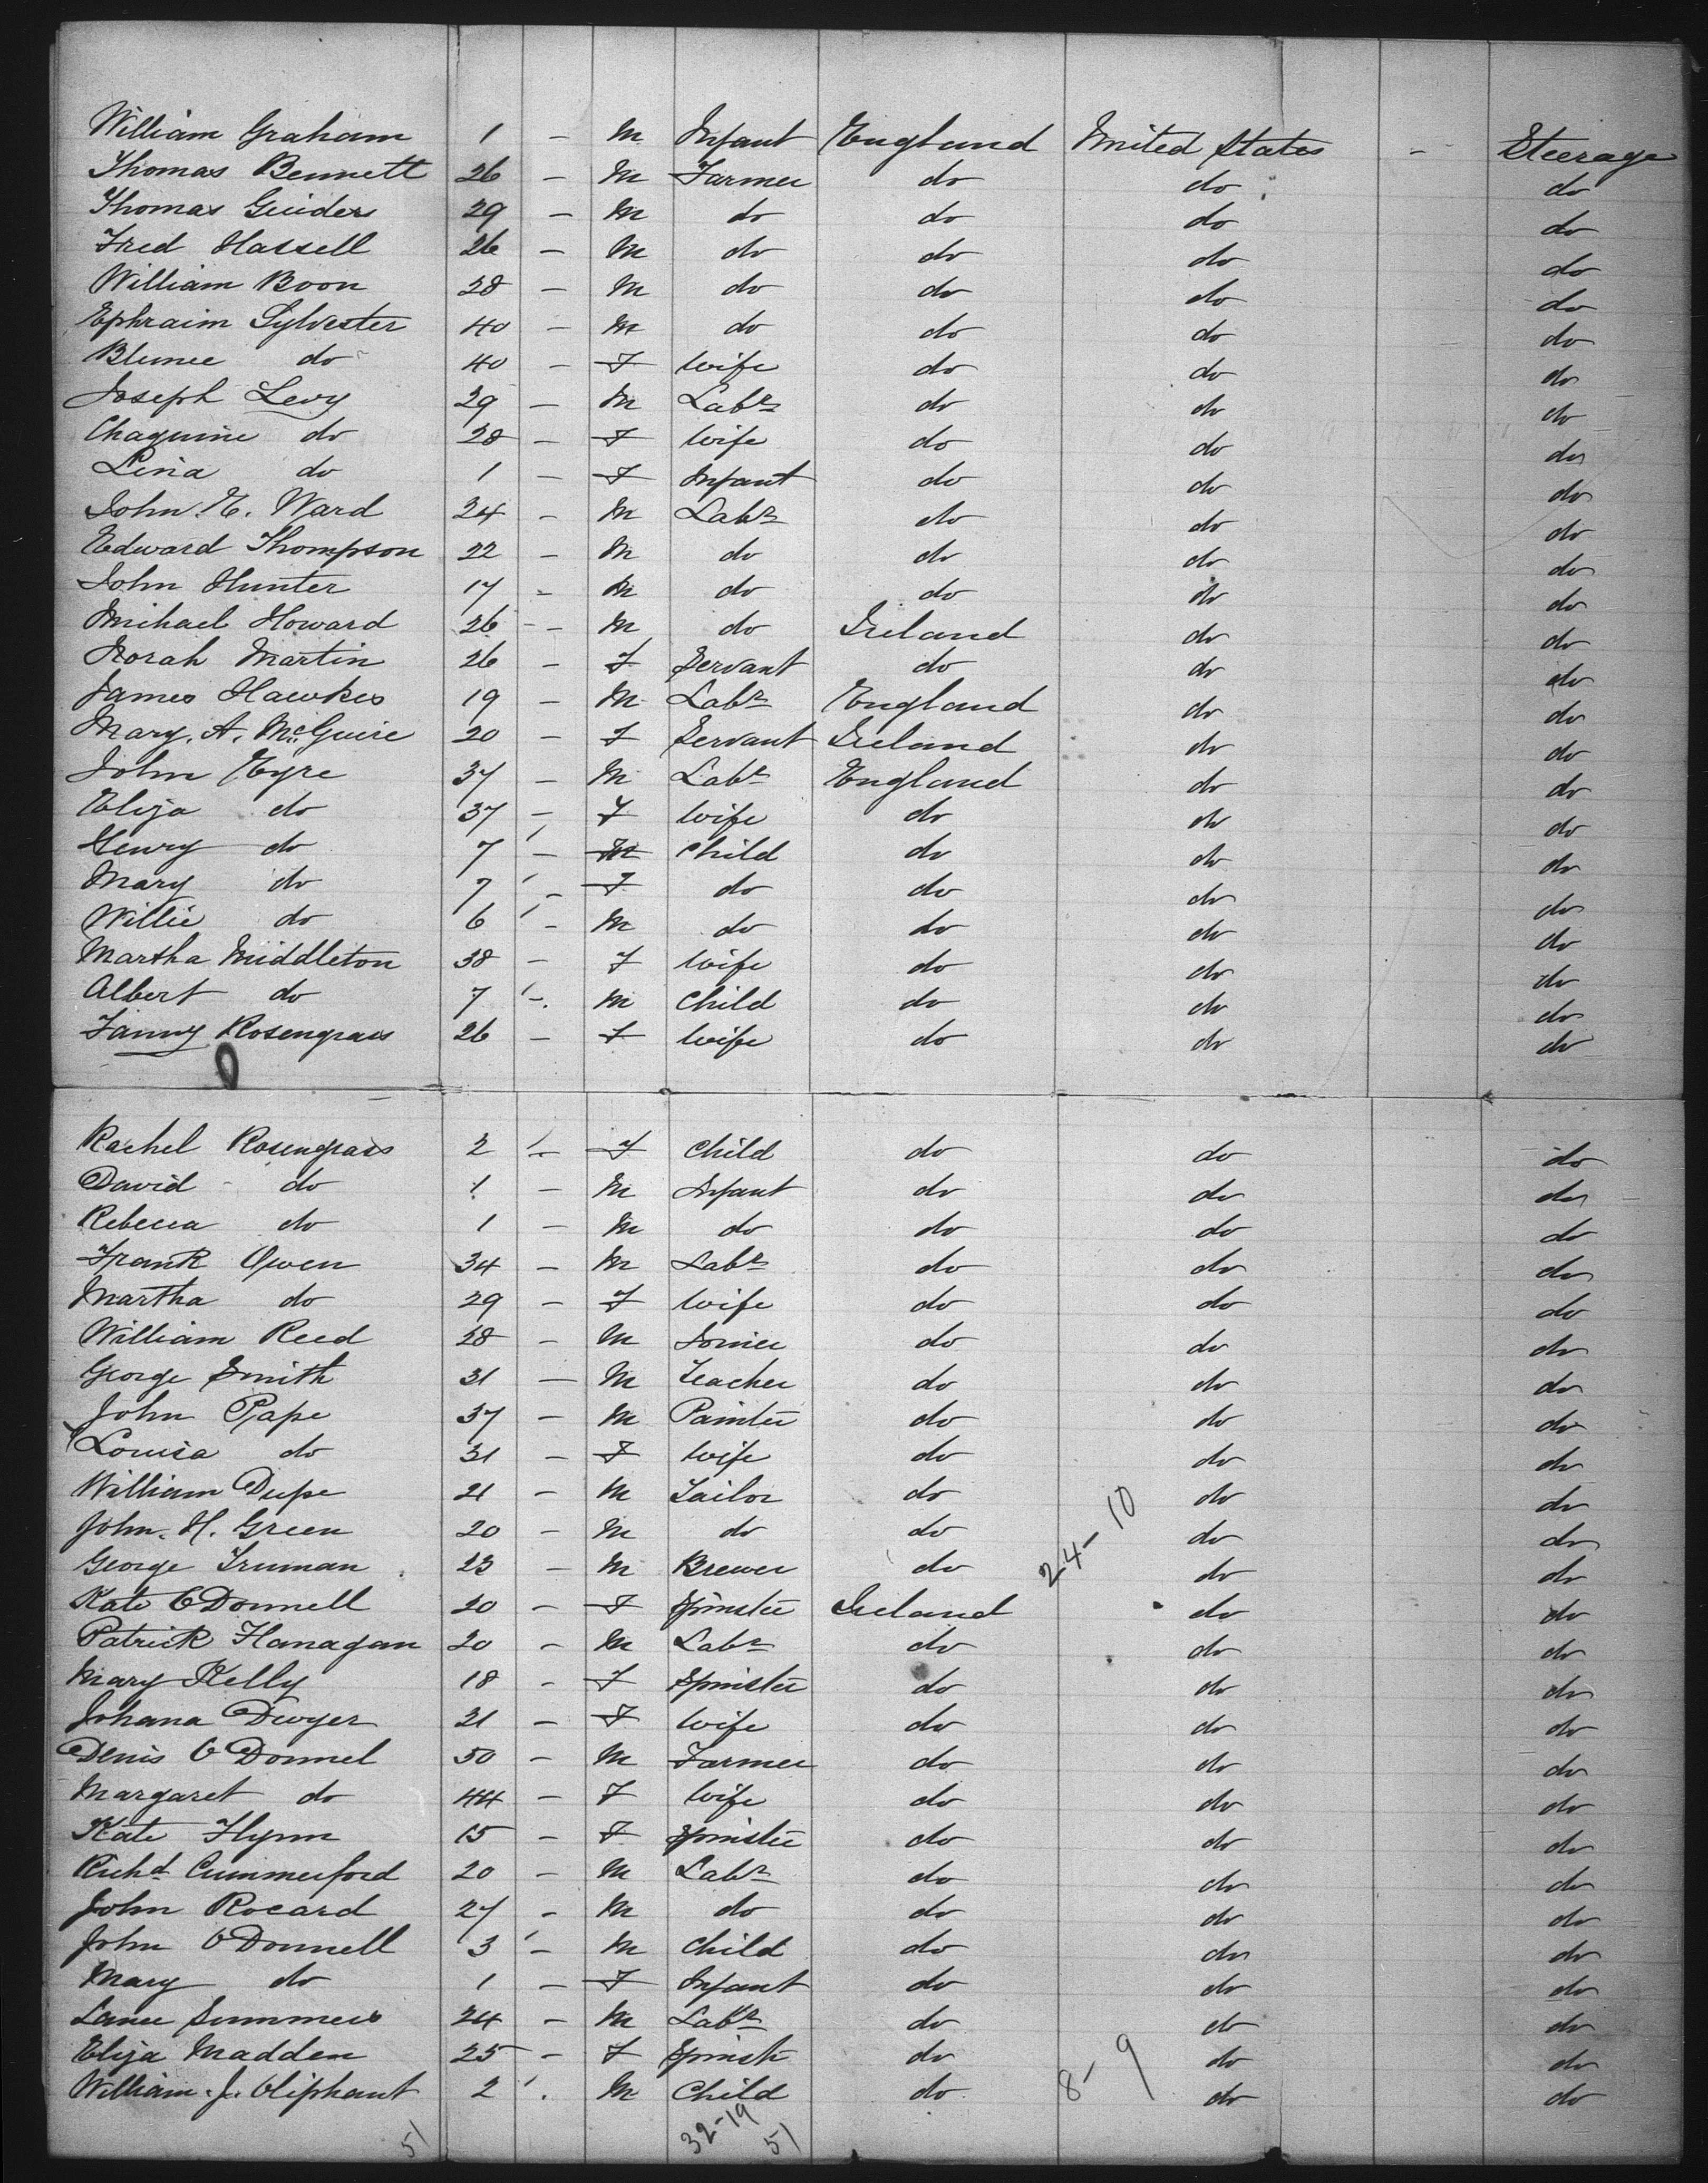 William Graham 1 – M Infant England United States – Steerage
Thomas Bennett 26 – M Farmer do do do
Thomas Guiders 29 – M do do do do
Fred Hassell 26 – M do do do do
William Boon 28 – M do do do do
Ephraim Sylvester 40 – M do do do do
Blumee do 40 – F wife do do do
Joseph Levy 29 – M Labr do do do
Chaguine do 28 – F wife do do do
Lina do 1 – F Infant do do do
John. E. Ward 24 – M Labr do do do
Edward Thompson 22 – M do do do do
John Hunter 17 – M do do do do
Mihael Howard 26 – M do Ireland do do
Norah Martin 26 – F Servant do do do
James Hawkes 19 – M Labr England do do
Mary. A. McGuire 20 – F Servant Ireland do do
John Eyre 37 – M Labr England do do
Eliza do 37 – F wife do do do
Henry do 7 – M child do do do
Mary do 7 – F do do do do
Willie do 6 – M do do do do
Martha Middleton 38 – F wife do do do
Albert do 7 – M child do do do
Fanny Rosengrass 26 – F wife do do do
Rachel Rosengrass 2 – F child do do do
David do 1 – M Infant do do do
Rebecca do 1 – M do do do do
Frank Owen 34 – M Labr do do do
Martha do 29 – F wife do do do
William Reed 28 – M Joiner do do do
George Smith 31 – M Teacher do do do
John Pape 37 – M Painter do do do
Louisa do 31 – F wife do do do
William Dupe 21 – M Tailor do do do
John. H. Green 20 – M do do do do
George Truman 23 – M Brewer do 24–10 do do
Kate ODonnell 20 – F Spinster Ireland do do
Patrick Flanagan 20 – M Labr do do do
Mary Kelly 18 – F Spinster do do do
Johana Dwyer 21 – F wife do do do
Denis O'Donnel 50 – M Farmer do do do
Margaret do 44 – F wife do do do
Kate Flynn 15 – F Spinster do do do
Richd Cummerford 20 – M Labr do do do
John Rocard 27 – M do do do do
John ODonnell 3 – M child do do do
Mary do 1 – F Infant do do do
Summers 24 – M Labr do do do
Eliza Madden 25 – F Spinstr do do do
William. J. Oliphant 2 . M Child do 8–9 do do
51 32–19 51